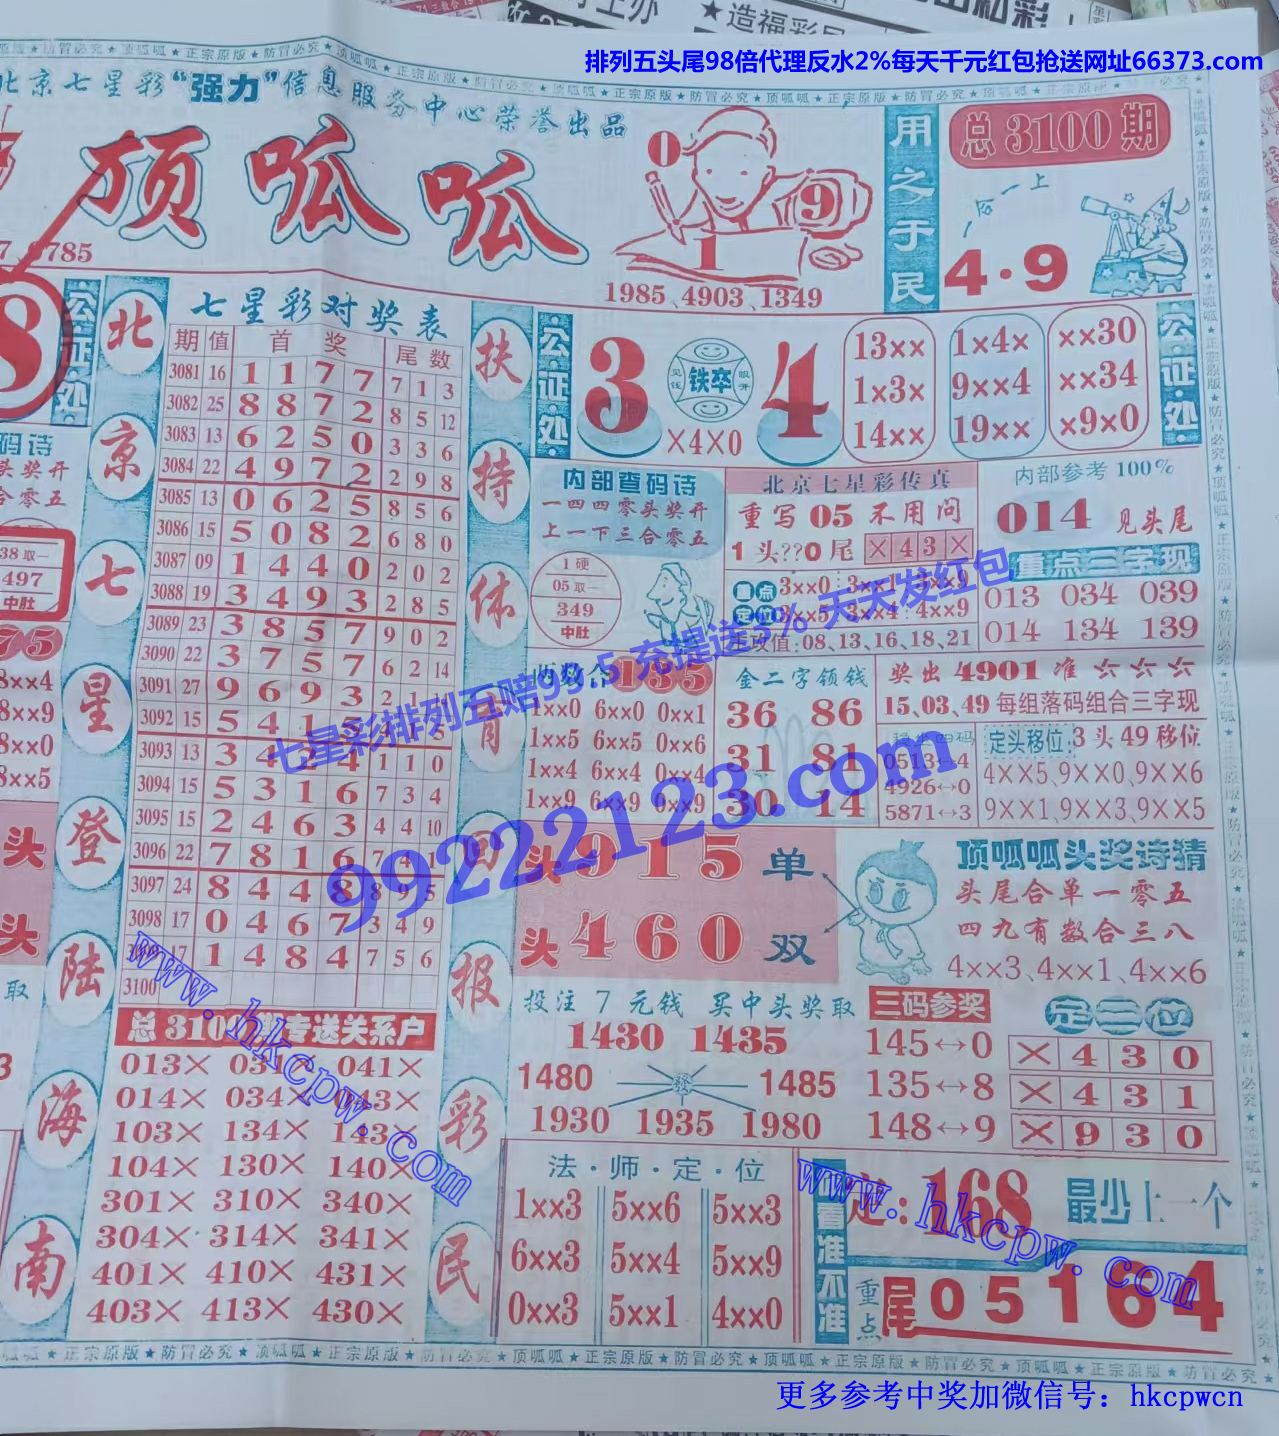 排列五头尾98倍代理反水2%每天千元红包抢送网址66373.com
北京七星彩“强力”信息服务中心荣誉出品
顶呱呱
785
0
9
1
1985、4903、1349
用之于民
总3100期
必一上
4·9
8
公证处
北京七星登陆海南
七星彩对奖表
期 值 首奖 尾数
3081 16 1 1 7 7 7 1 3
3082 25 8 8 7 2 8 5 12
3083 13 6 2 5 0 3 3 6
3084 22 4 9 7 2 2 9 8
3085 13 0 6 2 5 8 5 6
3086 15 5 0 8 2 6 8 0
3087 09 1 4 4 0 2 0 2
3088 19 3 4 9 3 2 8 5
3089 23 3 8 5 7 9 0 2
3090 22 3 7 5 7 6 2 14
3091 27 9 6 9 3 2 1
3092 15 5 4 1 5
3093 13 3 4 2 4 1 1 0
3094 15 5 3 1 6 7 3 4
3095 15 2 4 6 3 4 4 10
3096 22 7 8 1 6 7 4 1
3097 24 8 4 4 8 8 9 5
3098 17 0 4 6 7 3 4 9
17 1 4 8 4 7 5 6
3100
总3100期专送关系户
013× 034× 041×
014× 034× 043×
103× 134× 143×
104× 130× 140×
301× 310× 340×
304× 314× 341×
401× 410× 431×
403× 413× 430×
扶持体育回报彩民
公证处
3 铁卒 4
见钱 眼开
×4×0
13×× 1×4× ××30
1×3× 9××4 ××34
14×× 19×× ×9×0
公证处
内部查码诗
一四四零头奖开
上一下三合零五
1硬
05取一
349
中肚
北京七星彩传真
重写05不用问
1头??0尾 ×43×
重点定位
3××0 3××1 3××9
3××5 3××4 4××9
主攻值:08、13、16、18、21
内部参考100%
014 见头尾
重点三字现
013 034 039
014 134 139
两数合135
1××0 6××0 0××1
1××5 6××5 0××6
1××4 6××4 0××4
1××9 6××9 0××9
金二字领钱
36 86
31 81
30 14
奖出4901准☆☆☆
15、03、49每组落码组合三字现
稳坐四码
0513↔4
4926↔0
5871↔3
定头移位:3头49移位
4××5、9××0、9××6
9××1、9××3、9××5
头915单
头460双
顶呱呱头奖诗猜
头尾合单一零五
四九有数合三八
4××3、4××1、4××6
投注7元钱 买中头奖取
1430 1435
1480 1485
1930 1935 1980
三码参奖
145↔0
135↔8
148↔9
定三位
×430
×431
×930
法·师·定·位
1××3 5××6 5××3
6××3 5××4 5××9
0××3 5××1 4××0
看准不准
定:168 最少上一个
重点尾05164
码诗
头奖开
合零五
38取一
497
中肚
75
8××4
8××9
8××0
8××5
头
头
取
七星彩排列五赔99.5 充提送3% 天天发红包
99222123.com
www.hkcpw.com
www.hkcpw.com
★正宗原版★防冒必究★顶呱呱★正宗原版★防冒必究★顶呱呱★正宗原版★防冒必究★
更多参考中奖加微信号：hkcpwcn